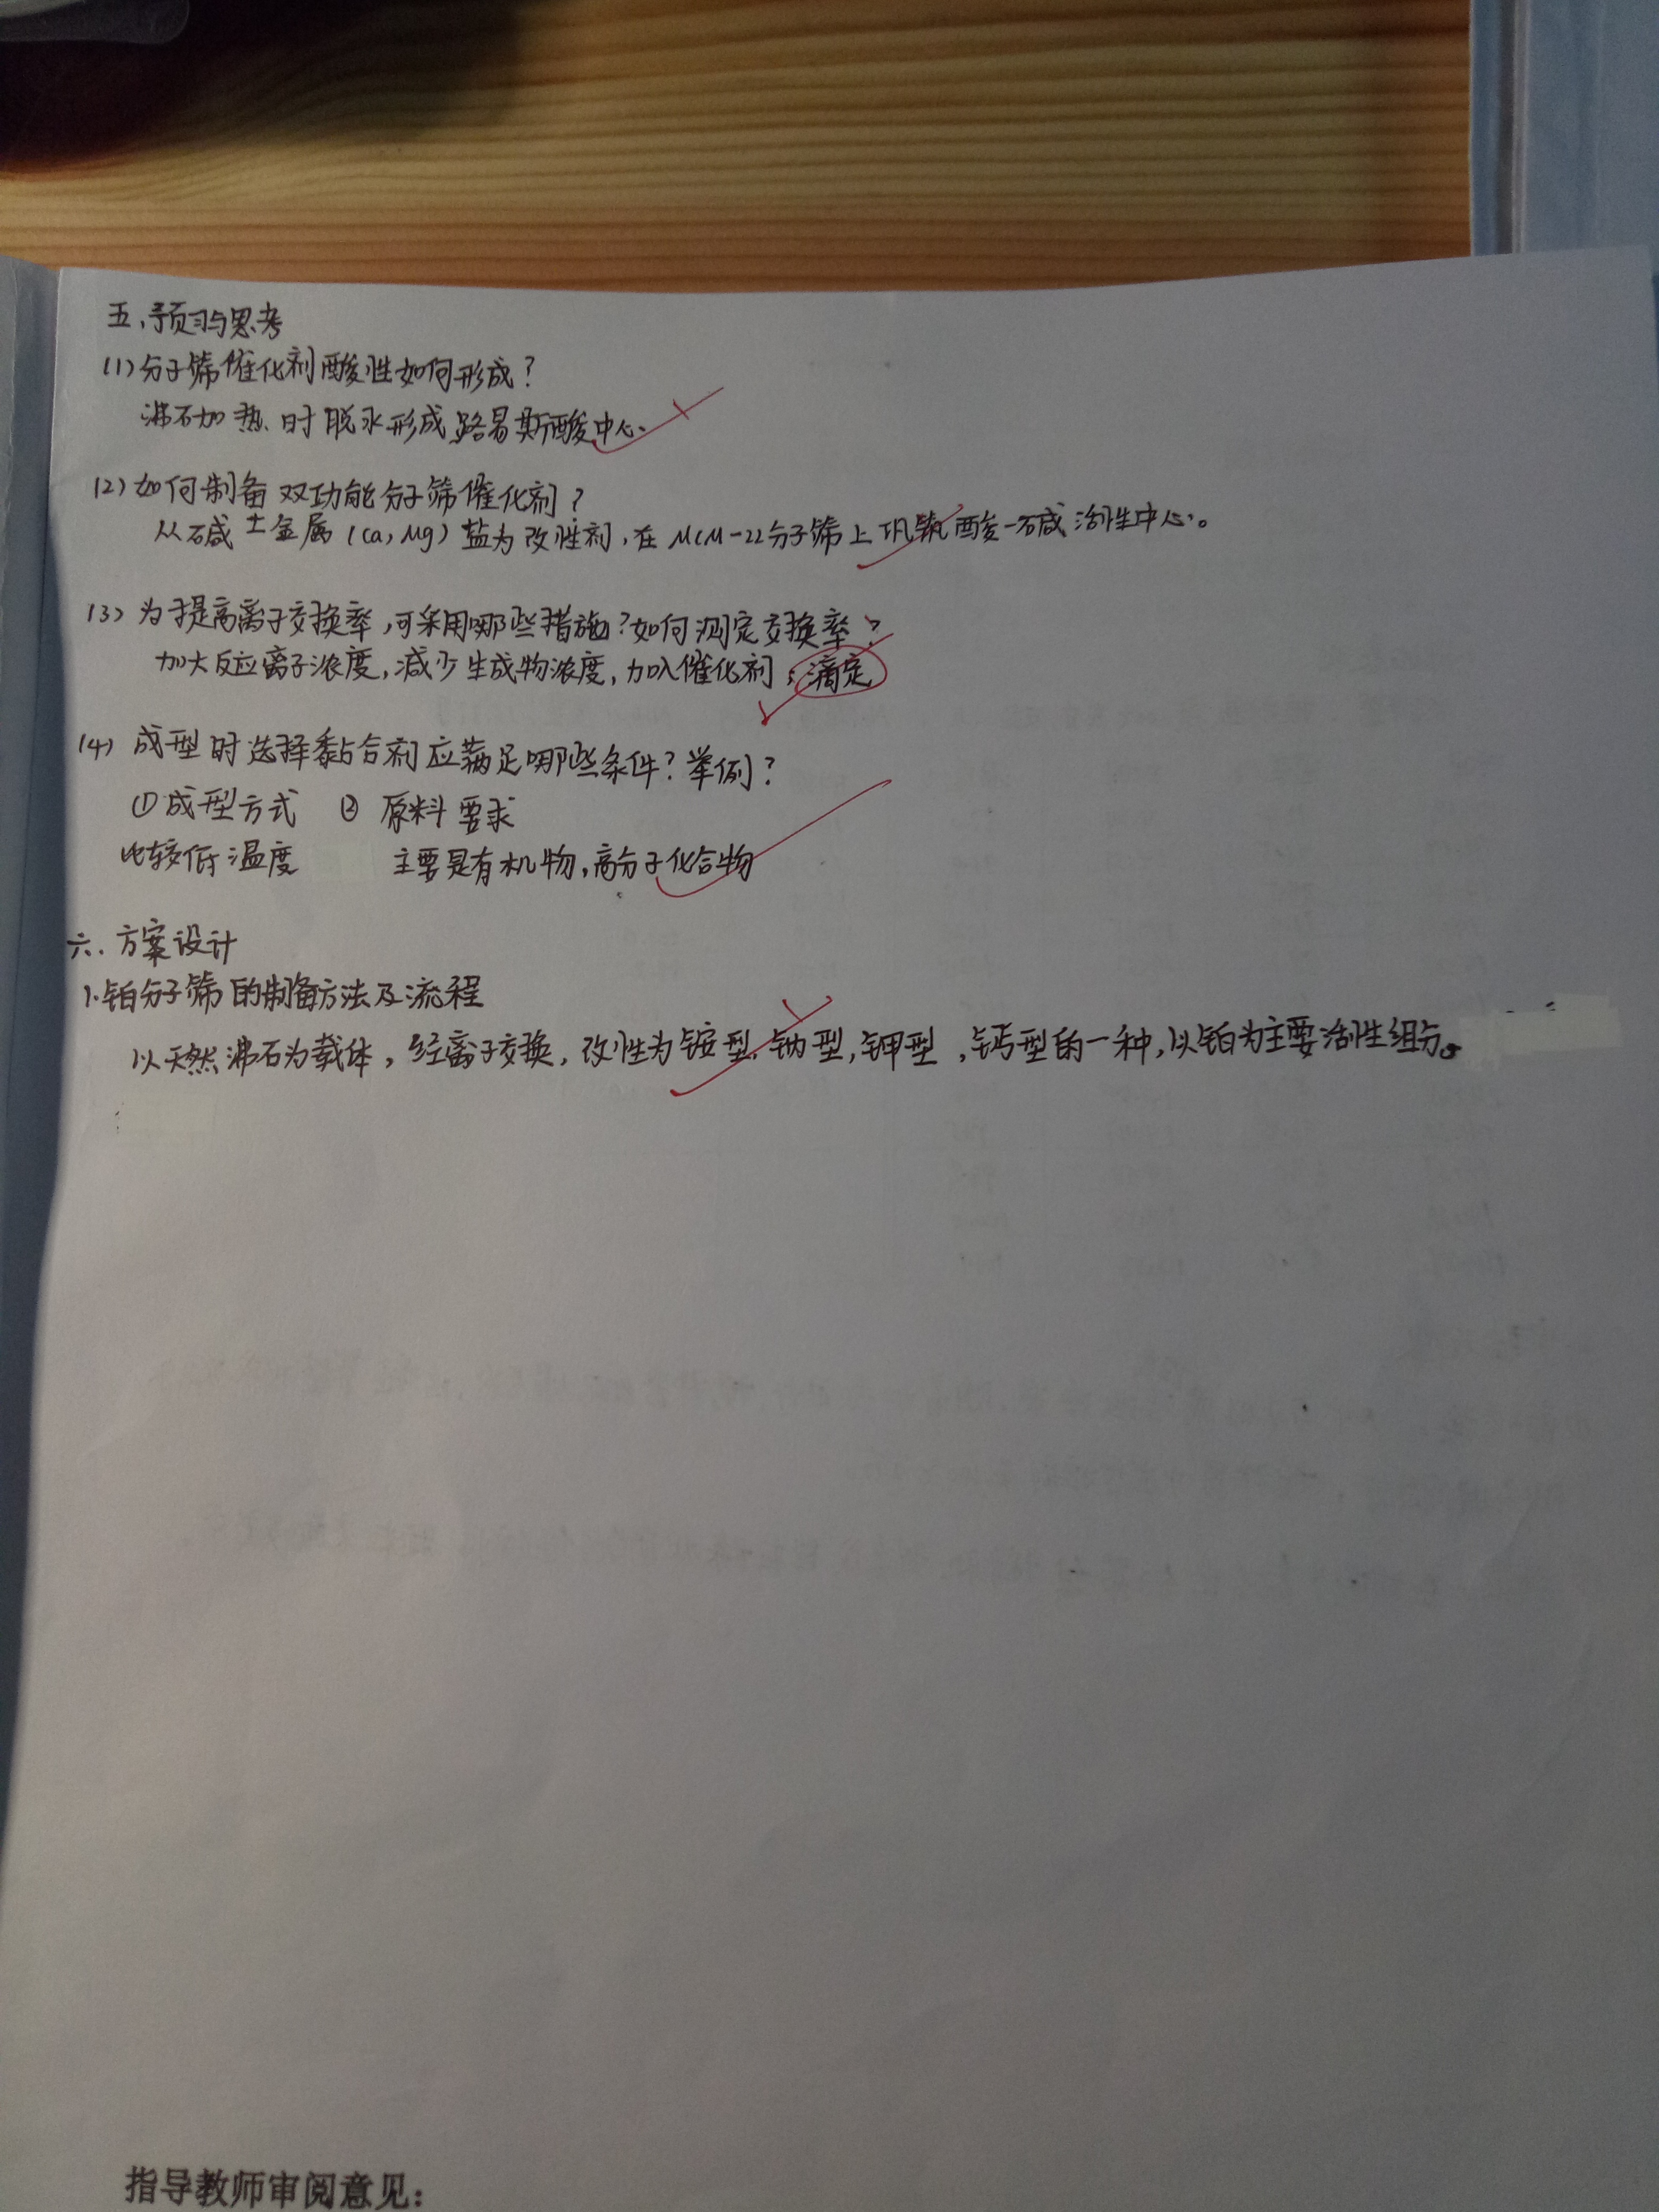 五、预习与思考
(1)分子筛催化剂酸性如何形成?
沸石加热时脱水形成路易斯酸中心.
(2)如何制备双功能分子筛催化剂?
从碱土金属(Ca,Mg)盐为改性剂,在MCM-22分子筛上 酸-碱活性中心。
(3)为提高离子交换率,可采用哪些措施?如何测定交换率?
加大反应离子浓度,减少生成物浓度,加入催化剂;滴定
(4)成型时选择黏合剂应满足哪些条件?举例?
①成型方式 ② 原料要求
比较低温度 主要是有机物,高分子化合物
六.方案设计
1.铂分子筛的制备方法及流程
以天然沸石为载体,经离子交换,改性为铵型,钠型,钾型,钙型的一种,以铂为主要活性组分。
指导教师审阅意见: